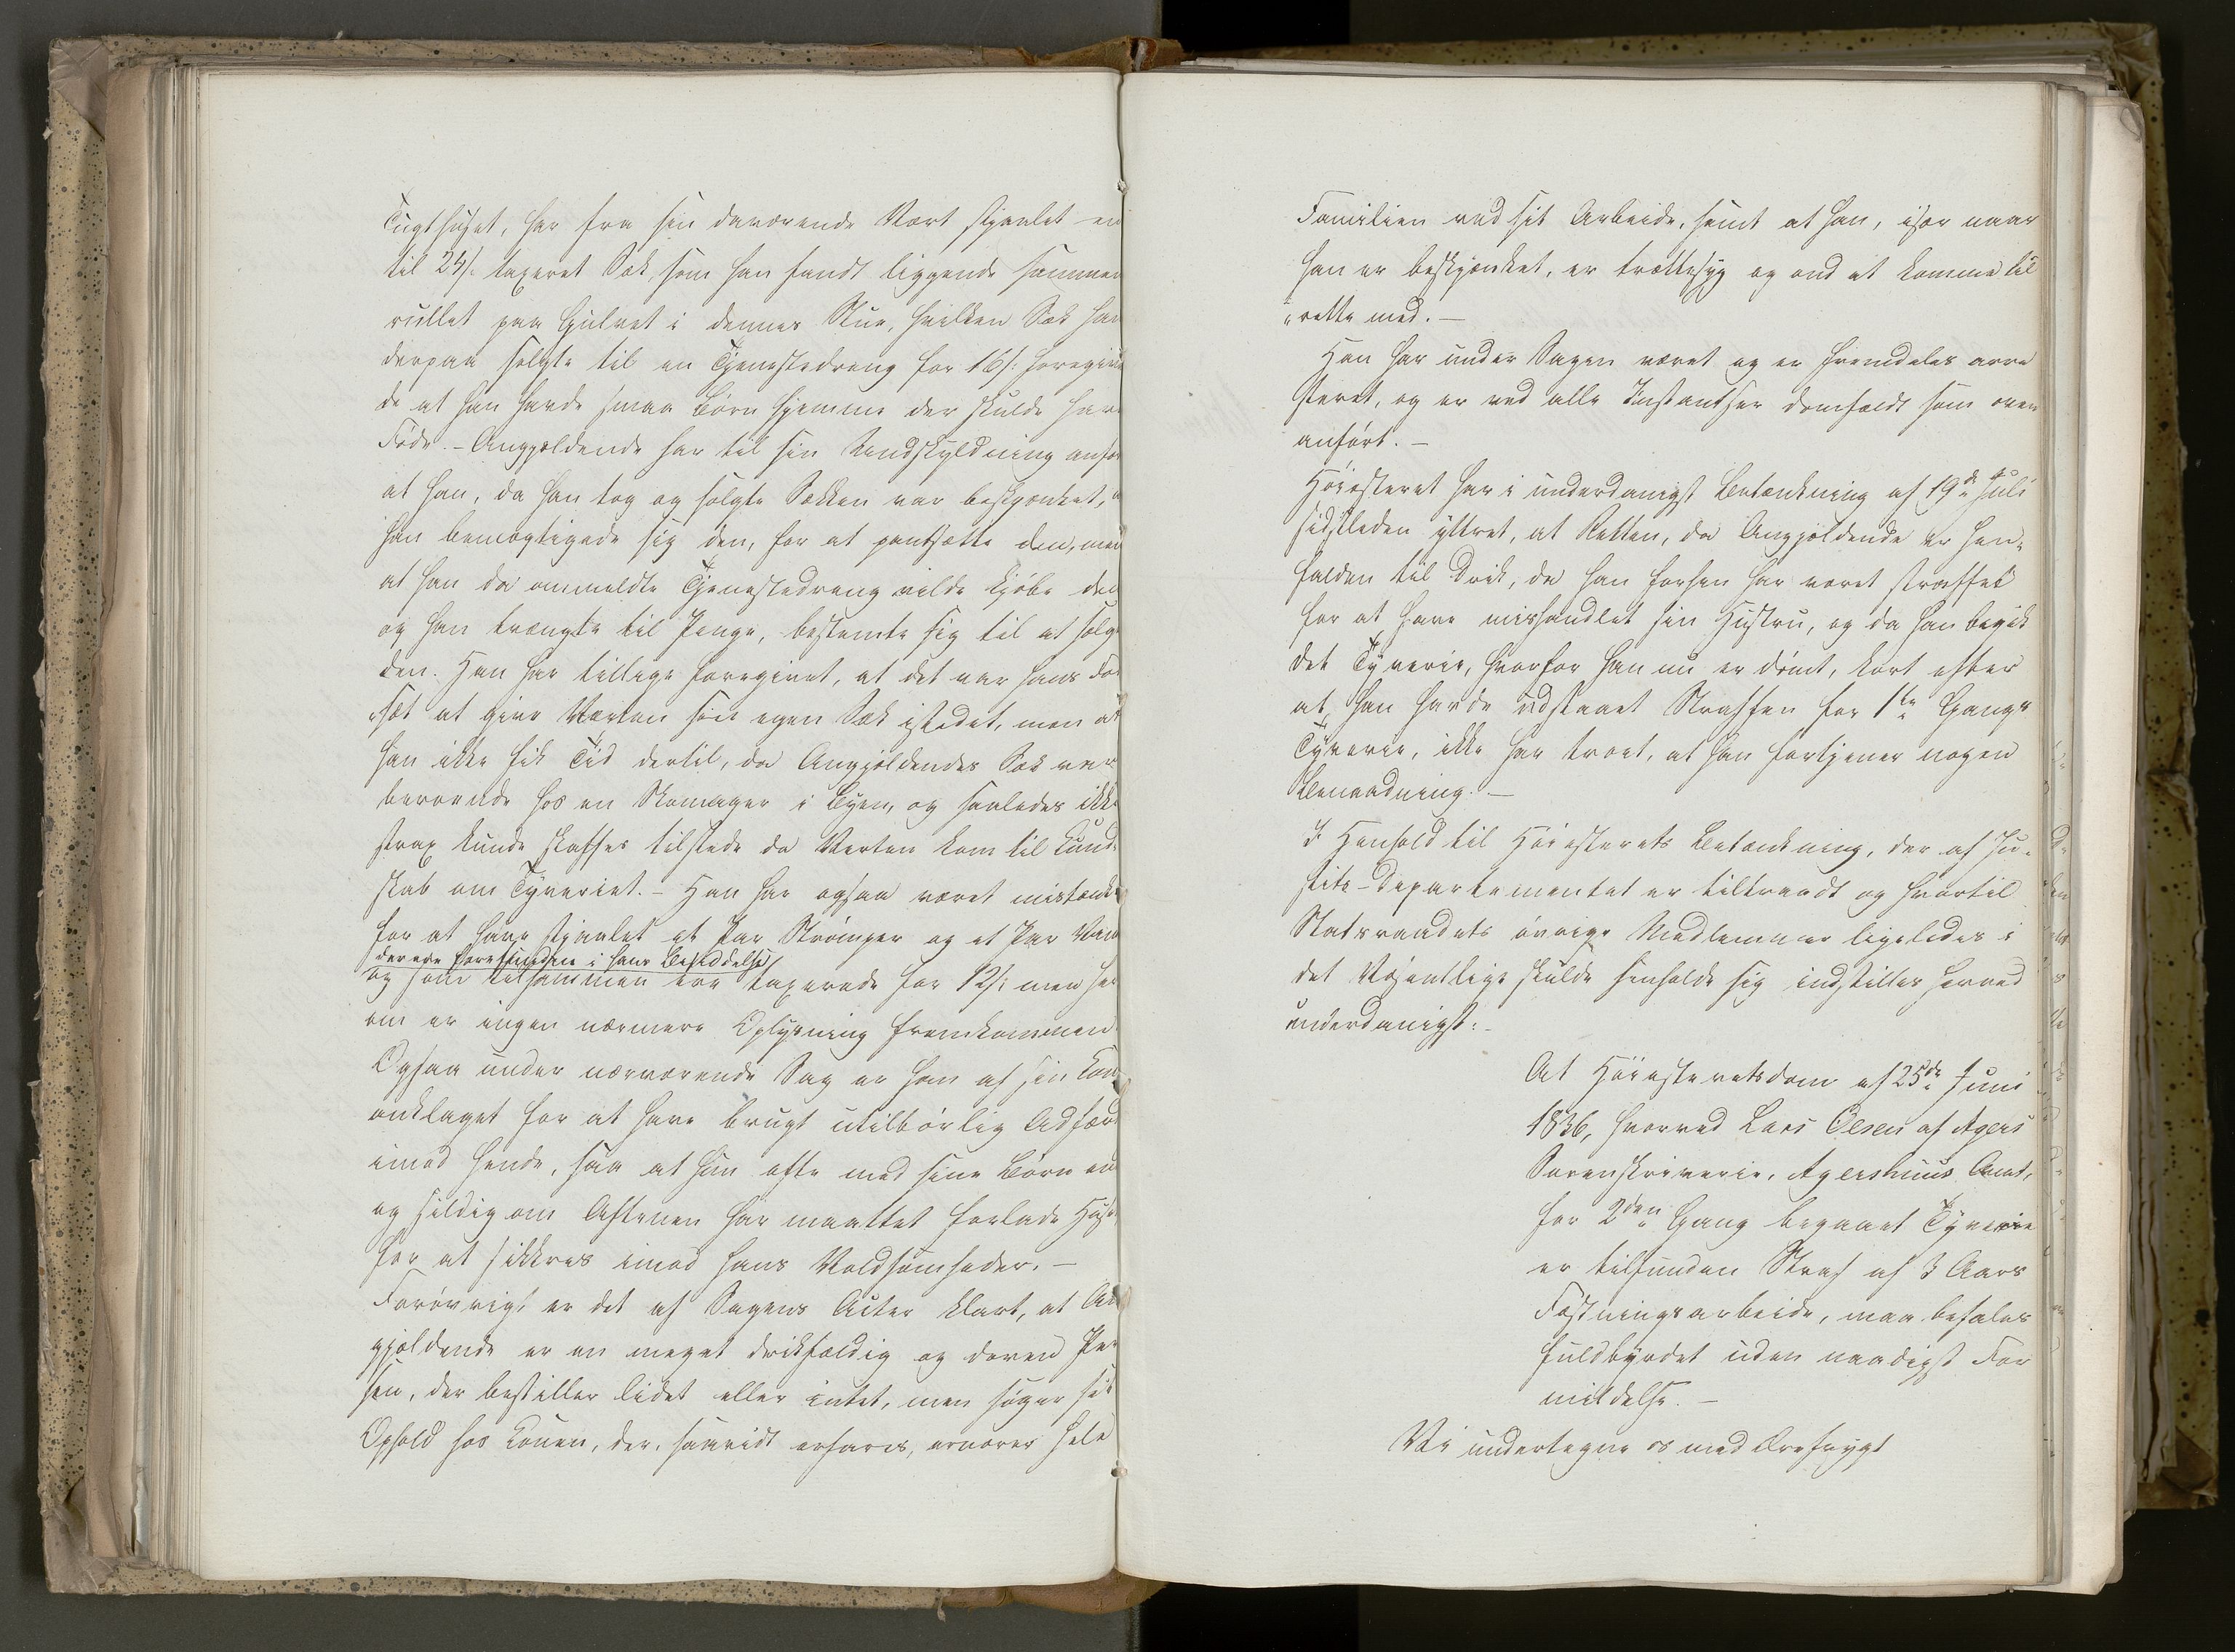 Tugthuset, har fra sin daværende Vært stjaalet en
til 24 s. taxeret Sæk, som han fandt liggende sammen
rullet paa Gulvet i dennes Stue, hvilken Sæk han
derpaa solgte til en Tjenestedreng for 16 s: foregiven
de at han havde smaa Børn hjemme der skulde have
Føde. - Angjældende har til sin Undskyldning anfør
at han, da han tog og solgte Sækken var beskjænket,
han bemægtigede sig den, for at pantsætte den, men
at han da ommeldte Tjenestedreng vilde kjøbe den
og han trængte til Penge, bestemte sig til at sælge
den. Han har tillige foregivet, at det var hans For
"sæt at give Værten sin egen Sæk istedet, men at
han ikke fik Tid dertil, da Angjældendes Sæk var
beroende hos en Skomager i Byen, og saaledes ikke
strax kunde skaffes tilstede da Verten kom til Kund-
skab om Tyveriet. - Han har ogsaa været mistænkt
for at have stjaalet et Par Strømper og et Par
der ere forefundne i hans Besiddelse
og som tilsammen ere taxerede for 12 s: men her
om er ingen nærmere Oplysning fremkommen
Ogsaa under nærværende Sag er han af sin Kone
anklaget for at have brugt utilbørlig Adfærd
imod hende, saa at hun ofte med sine Børn
og sildig om Aftenen har maattet forlade Huset
for at sikkres imod hans Voldsomheder. -
Forøvrigt er det af Sagens Acter klart, at An
gjældende er en meget drikfældig og doven Per
son, der bestiller lidet eller intet, men søger sit
Ophold hos Konen, der, saavidt erfares, ernærer hele
Familien ved sit Arbeide, samt at han, især naar
han er beskjænket, er trættesyg og ond at komme til
"rette med. -
Han har under Sagen været og er fremdeles arre
steret, og er ved alle Instantser domfældt som oven
anført. -
Høiesteret har i underdanigst Betænkning af 19de Juli
sidstleden yttret, at Retten, da Angjældende er hen-
falden til Drik, da han forhen har været straffet
for at have mishandlet sin Hustru, og da han begik
det Tyverie, hvorfor han nu er dømt, kort efter
at han havde udstaaet Straffen for 1ste Gangs
Tyverie, ikke har troet, at han fortjener nogen
Benaadning. -
I Henhold til Høiesterets Betænkning, der af Ju-
stits-Departementet er tiltraadt og hvortil
Statsraadets øvrige Medlemmer ligeledes i
det Væsentlige skulde henholde sig indstilles herved
underdanigst: -
At Høiesteretsdom af 25de Juni
1836, hvorved Lars Olsen af Agers
Sorenskriverie, Agershuus Amt,
for 2den Gang begaaet Tyverie
er tilfunden Straf af 3 Aars
Fæstningsarbeide, maa befales
fuldbyrdet uden naadigst For
mildelse. -
Vi undertegne os med Ærefrygt